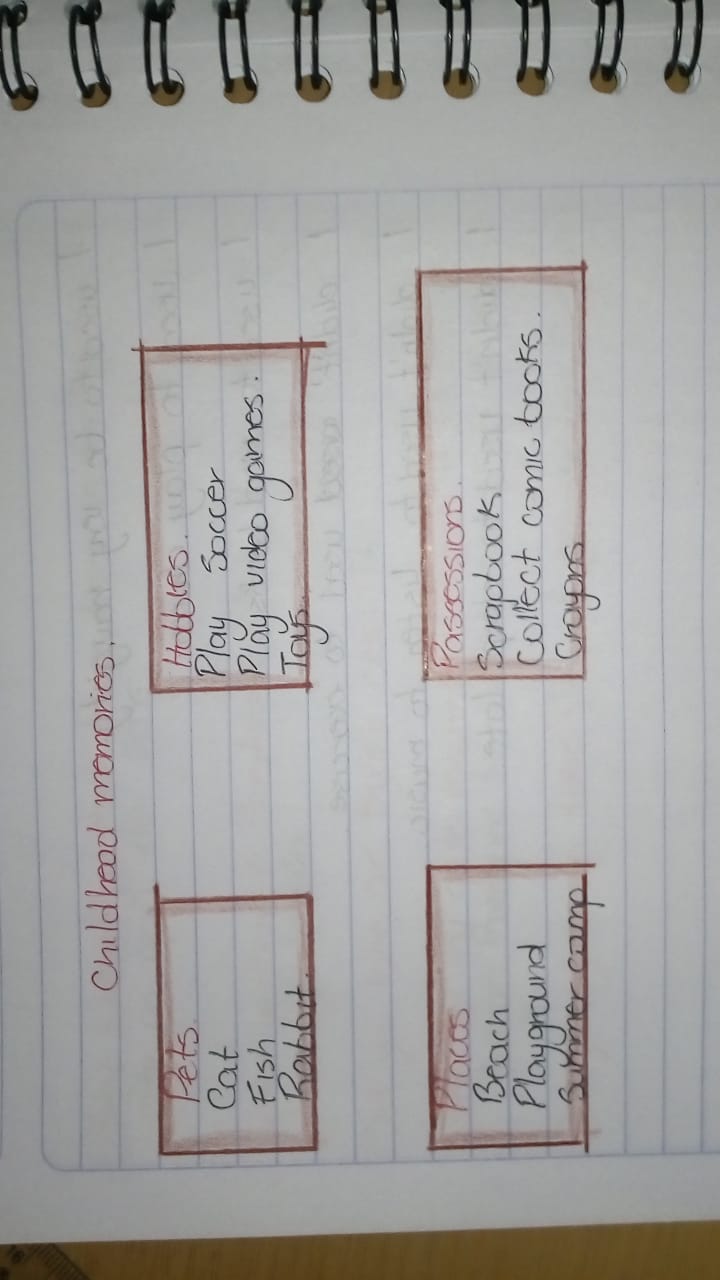 Childhood memories.
Pets.
Cat
Fish
Rabbit.
Hobbies.
Play Soccer
Play video games.
Toys.
Places
Beach
Playground
Summer camp
Passessions.
Scrapbook
Collect comic books.
Crayons